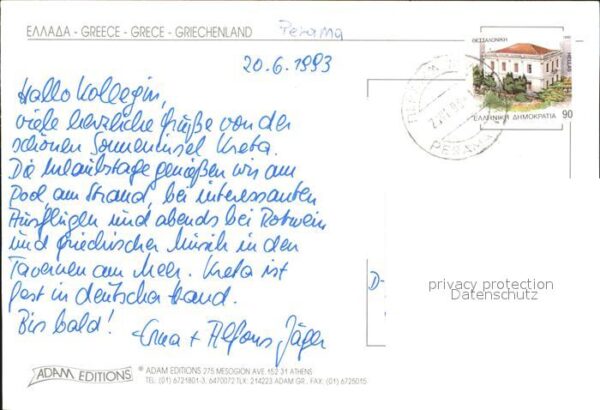 ΕΛΛΑΔΑ - GREECE - GRECE - GRIECHENLAND Perama
20.6.1993
Hallo Kollegin,
viele herzliche Grüße von der
schönen Sonneninsel Kreta.
Die Urlaubstage genießen wir am
Pool, am Strand, bei interessanten
Ausflügen und abends bei Rotwein
und griechischer Musik in den
Tavernen am Meer. Kreta ist
fest in deutscher Hand.
Bis bald!
Erna + Alfons Jäger
ΘΕΣΣΑΛΟΝΙΚΗ
HELLAS
ΕΛΛΗΝΙΚΗ ΔΗΜΟΚΡΑΤΙΑ 90
PERAMA
D-
privacy protection
Datenschutz
ADAM EDITIONS
® ADAM EDITIONS 275 MESOGION AVE. 152 31 ATHENS
TEL: (01) 6721801-3, 6470072 TLX: 214223 ADAM GR. FAX: (01) 6725015